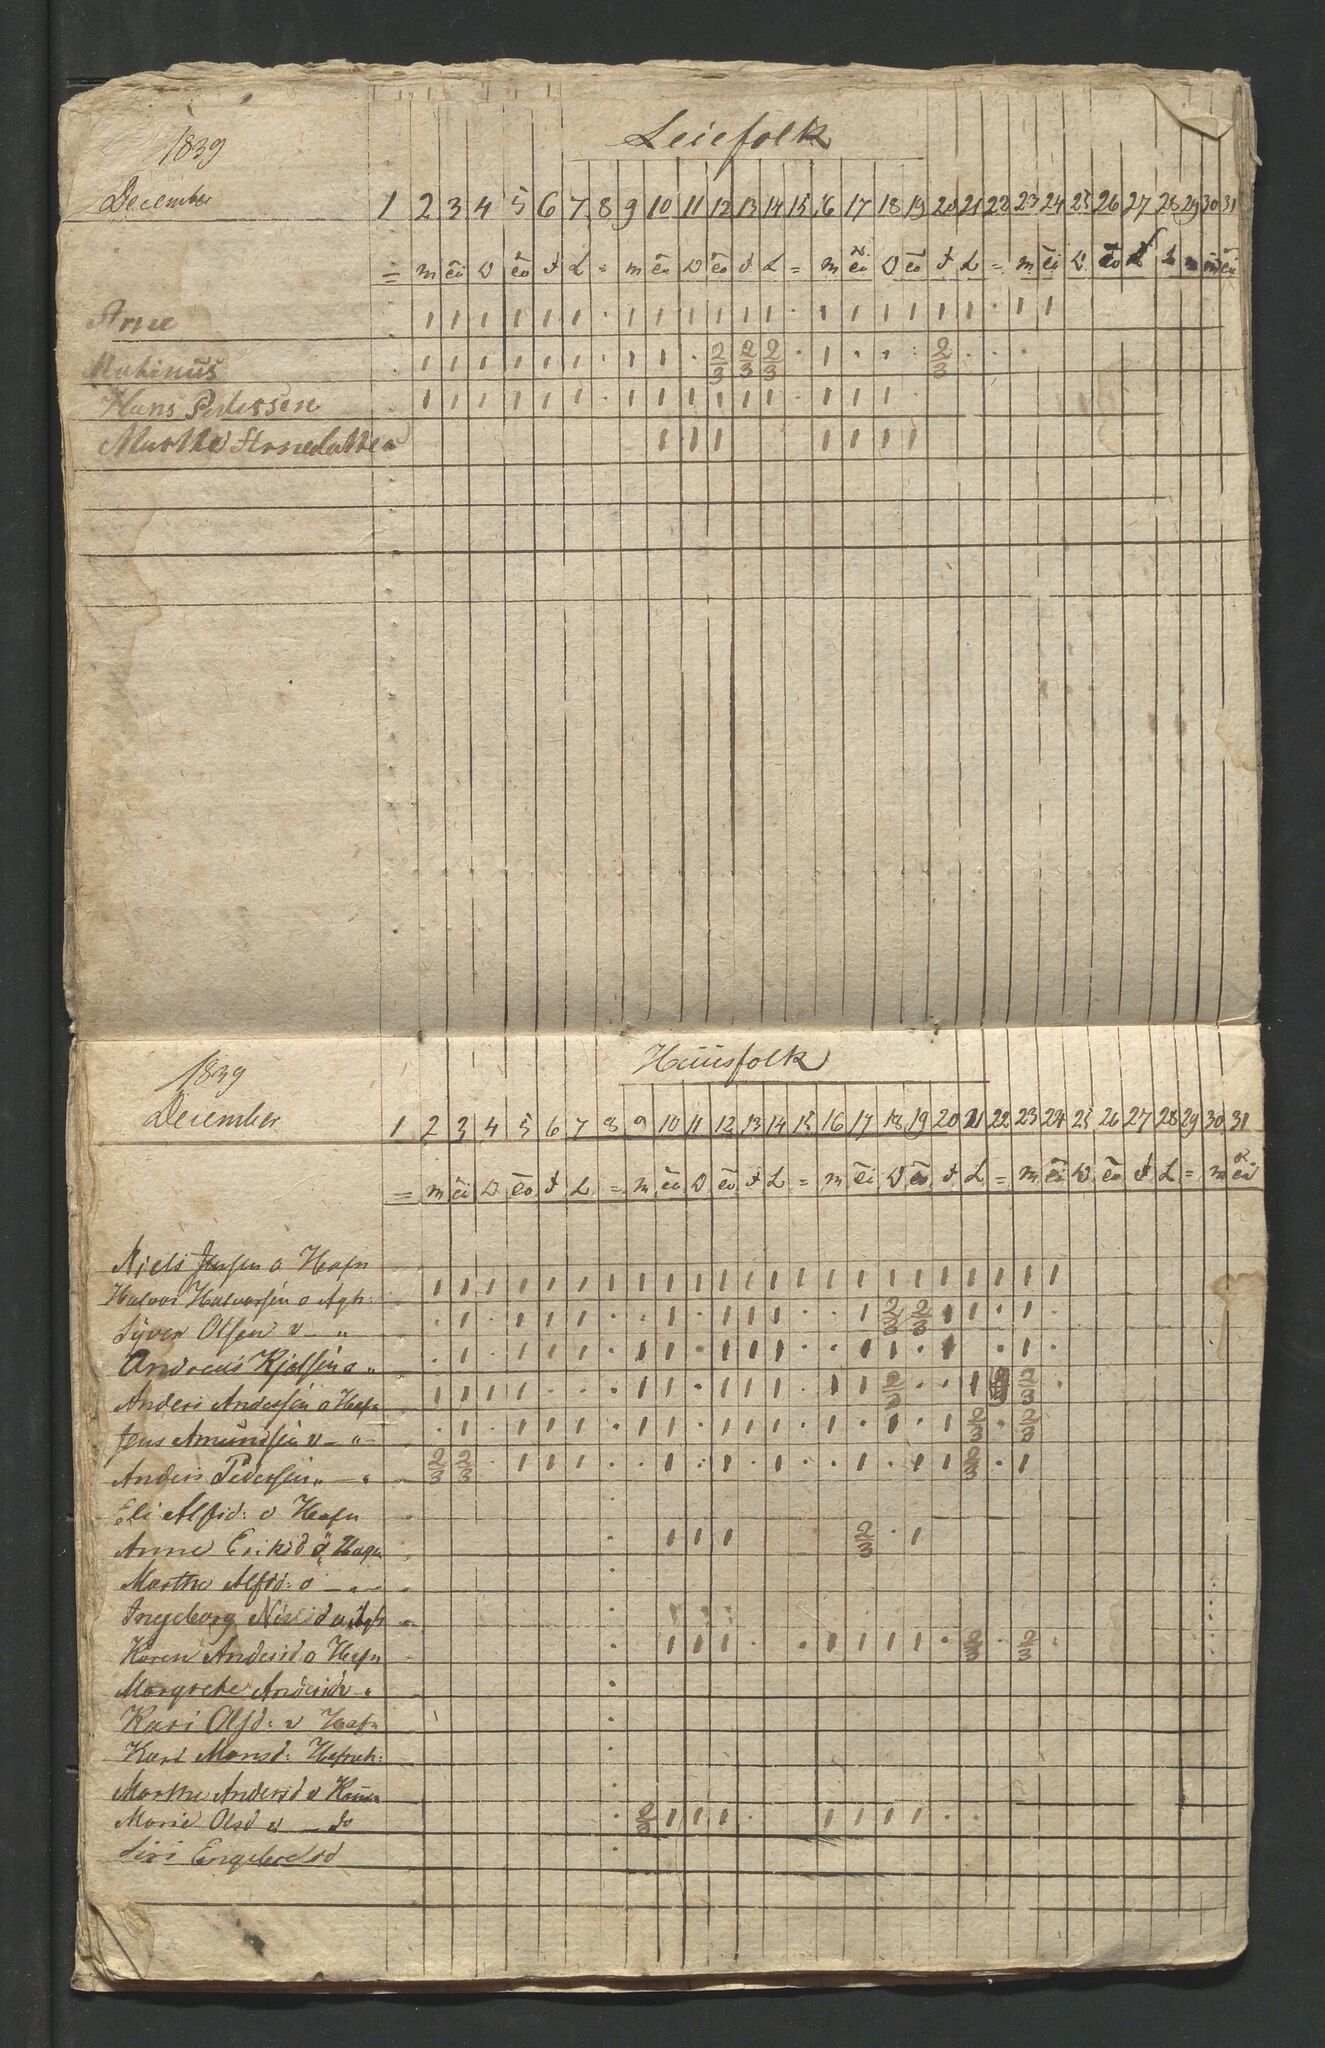 1839
Leiefolk
December 1 2 3 4 5 6 7 8 9 10 11 12 13 14 15 16 17 18 19 20 21 22 23 24 25 26 27 28 29 30 31
Arne 1 1 1 1 1 1 . 1 1 1 1 1 1 . 1 1 1 1 1 1 . 1 1
1 1 1 1 1 1 . 1 1 . 2/3 2/3 2/3 . 1 . . . 2/3 . . .
Hans Pedersen 1 1 1 1 1 1 . 1 1 1 1 1 1 . 1 1 1 .
Marthe Arnedatter 1 1 1 1 1 1 1
1839
Huusfolk
December 1 2 3 4 5 6 7 8 9 10 11 12 13 14 15 16 17 18 19 20 21 22 23 24 25 26 27 28 29 30 31
Niels Jensen o Hafn
Halvor Halvorsen o Agh: 1 1 1 1 1 1 1 1 1 1 1 1 1 1 1 1 1 1 1 1 1 1 1
Syver Olsen v — " . 1 . 1 1 1 . 1 1 . 1 1 1 . . 1 2/3 2/3 1 1 . 1 .
Andreas Kjelsen o " . 1 . 1 1 1 . 1 1 . 1 1 1 . 1 1 1 . 1 . . 1 .
Anders Andersen o Hafn 1 1 1 1 . . . 1 1 . 1 1 1 . 1 1 2/3 . . 1 2/3 .
Jens Amundsen v — " . 1 . 1 1 1 . 1 1 1 1 1 1 . . 1 . 1 1 2/3 . 2/3
Anders Pedersen " — " 2/3 2/3 . 1 1 1 . . 1 . 1 . 1 . . 1 . 1 1 2/3 . 1
Eli Alfsd: o Hafn
Anne Eriksd o 1 1 1 2/3 . 1
Marthe Alfsd: o — "
Ingeborg Nielsd o Agh
Karen Andersd o Hafn . 1 1 1 . . 1 1 1 1 . 2/3 . 2/3 .
Margrete Andersd v — "
Kari Olsd: v Hafn
Kari Monsd:
Marthe Andersd v
Marie Olsd v — do . 2/3 1 1 1 . 1 1 1 1 . .
Siri Engebredsd